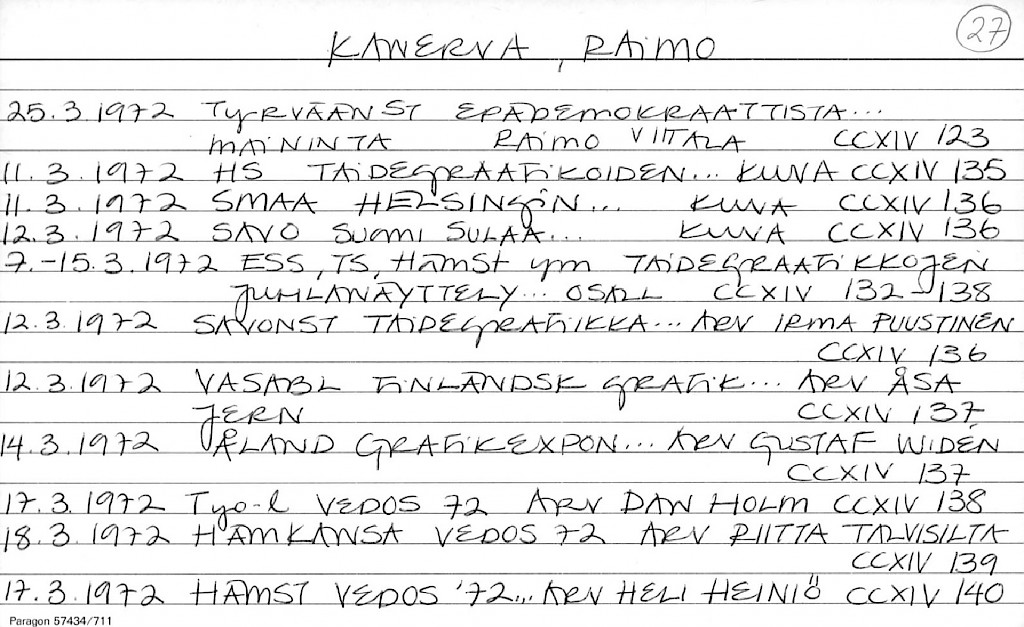 27
KANERVA, RAIMO
25.3.1972 TYRVÄÄNST EPÄDEMOKRAATTISTA...
MAININTA RAIMO VIITALA CCXIV 123
11.3.1972 HS TAIDEGRAAFIKOIDEN... KUVA CCXIV 135
11.3.1972 SMAA HELSINGIN... KUVA CCXIV 136
12.3.1972 SAVO SUOMI SULAA... KUVA CCXIV 136
7.-15.3.1972 ESS, TS, HÄMST ym TAIDEGRAAFIKKOJEN
JUHLANÄYTTELY... OSALL CCXIV 132-138
12.3.1972 SAVONST TAIDEGRAFIIKKA... ARV IRMA PUUSTINEN
CCXIV 136
12.3.1972 VASABL FINLÄNDSK GRAFIK... ARV ÅSA
JERN CCXIV 137
14.3.1972 ÅLAND GRAFIKEXPON... ARV GUSTAF WIDÉN
CCXIV 137
17.3.1972 Työ-l VEDOS 72 ARV DAN HOLM CCXIV 138
18.3.1972 HÄMKANSA VEDOS 72 ARV RIITTA TALVISILTA
CCXIV 139
17.3.1972 HÄMST VEDOS '72... ARV HELI HEINIÖ CCXIV 140
Paragon 57434/711